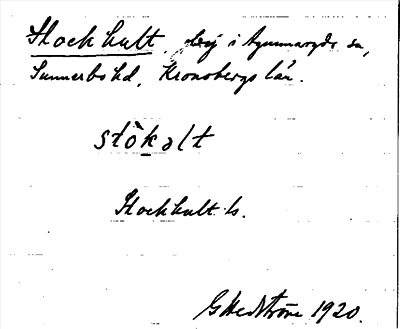 Stockhult, i Agunnaryds sn,
Sunnerbo hd, Kronobergs län.
stòkəlt
Stockhult s.
G Hedström 1920.